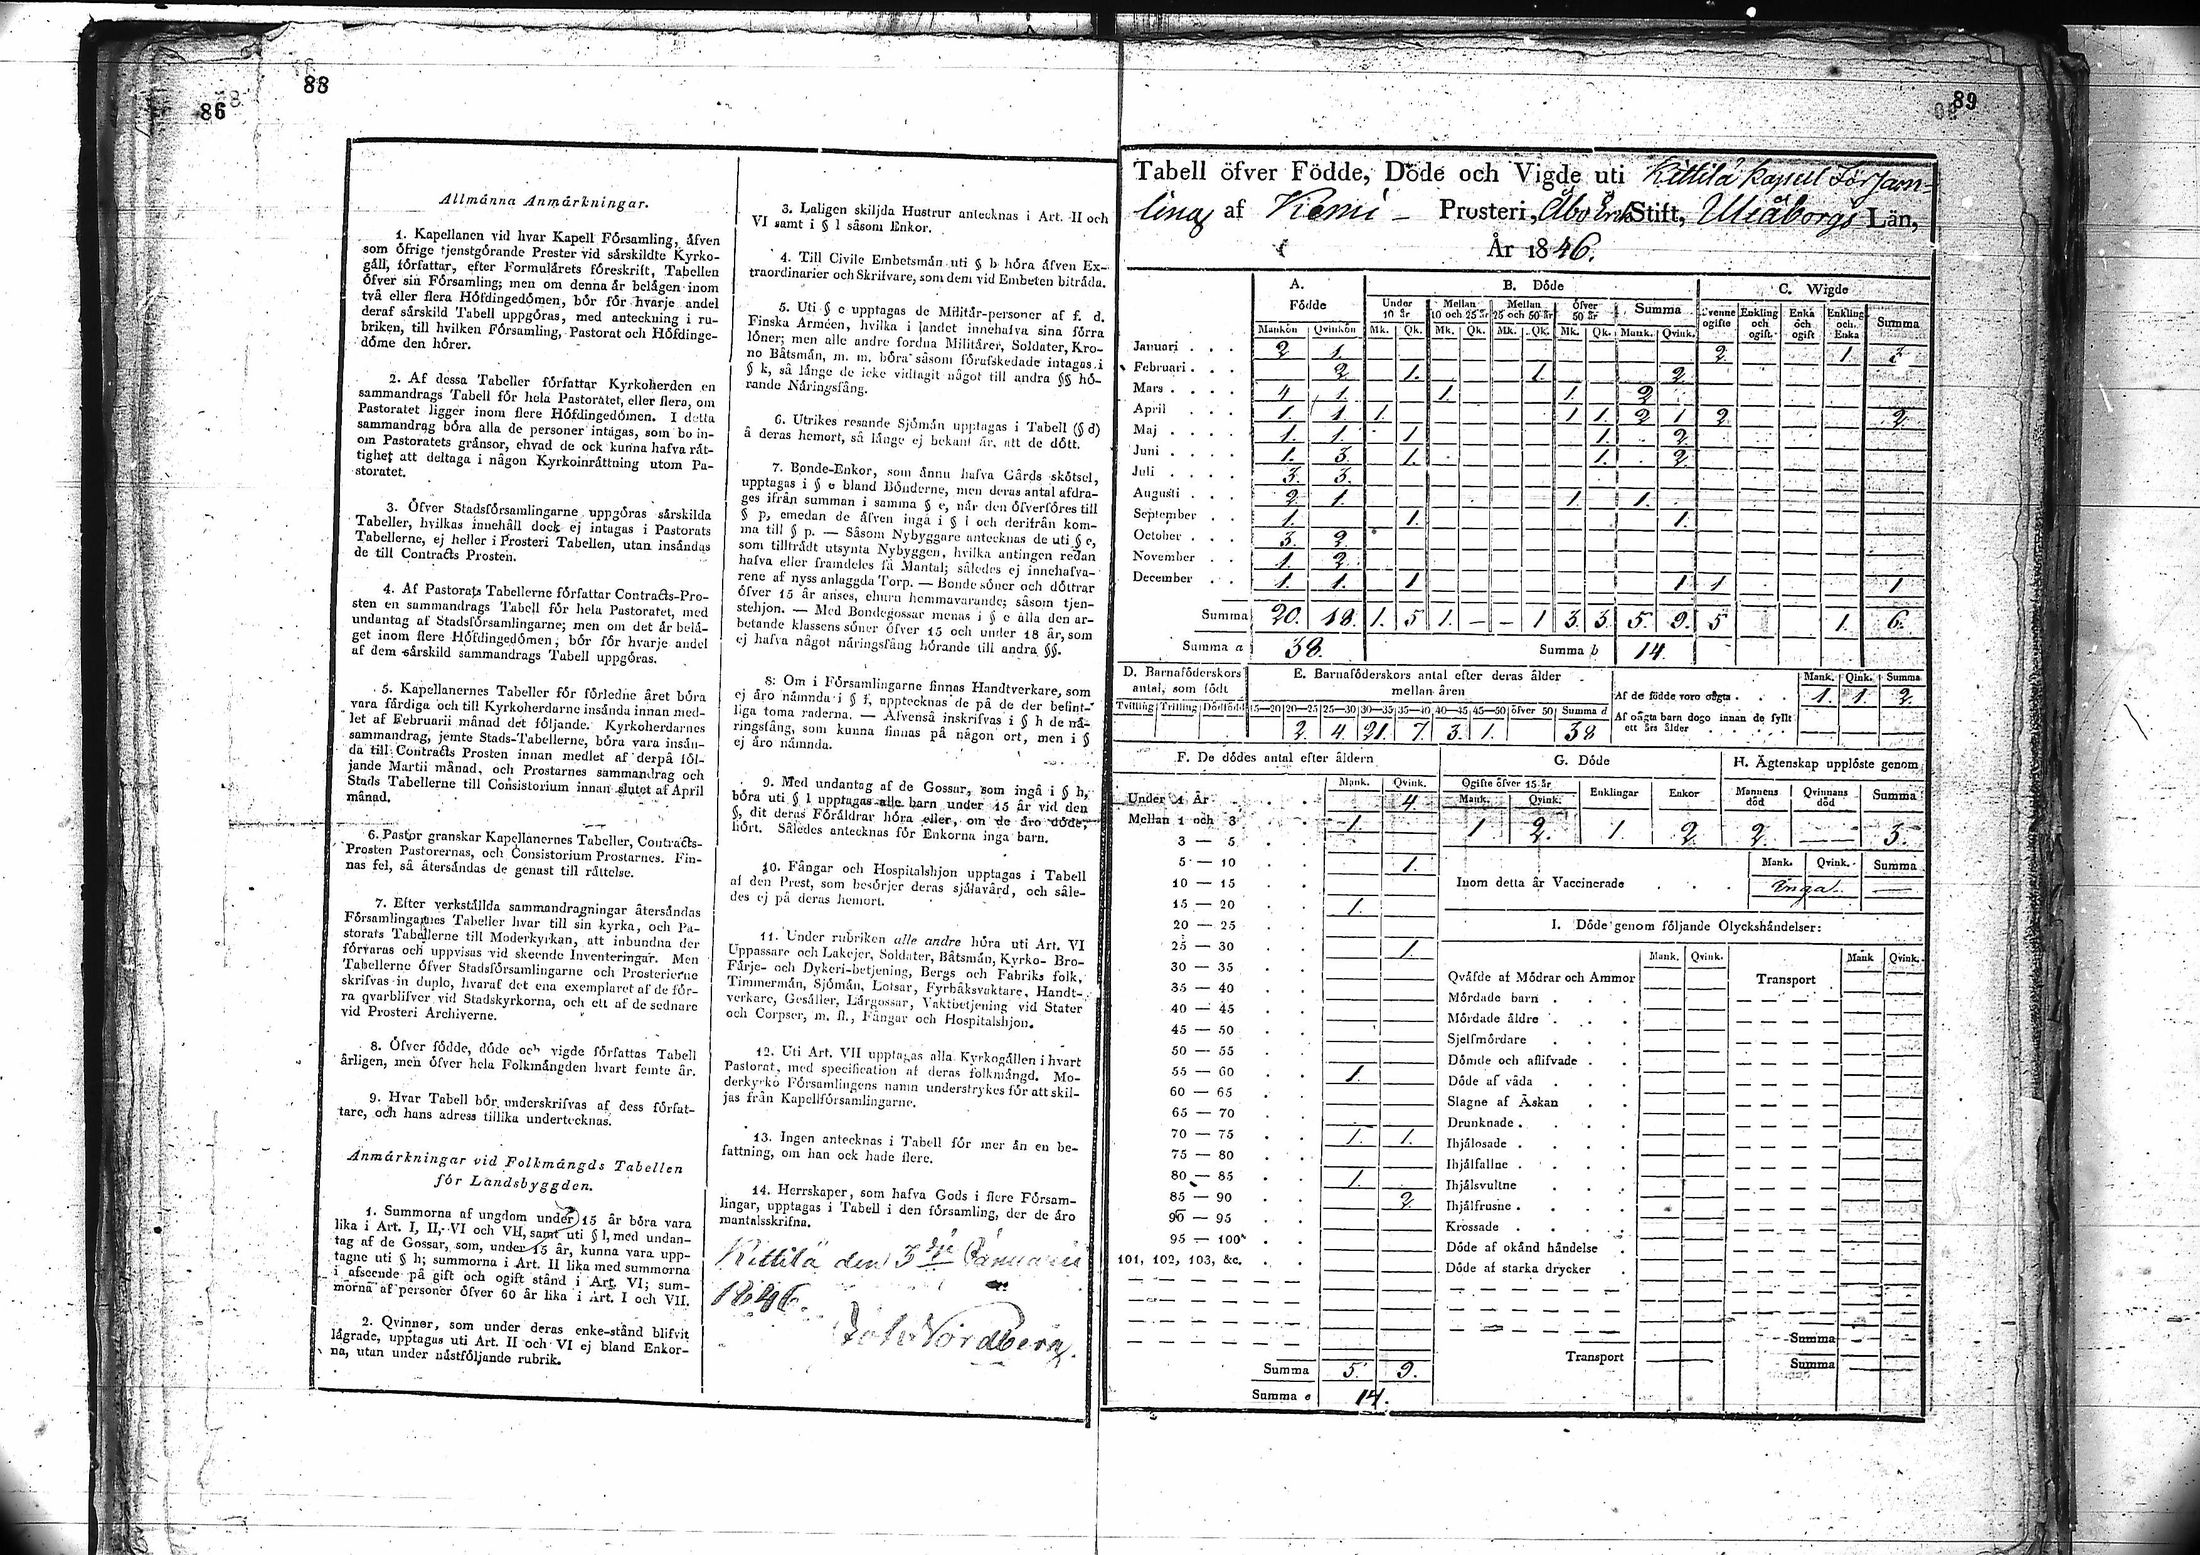 88
86
Allmänna Anmärkningar.
1. Kapellanen vid hvar Kapell Församling, äfven
som öfrige tjenstgörande Prester vid särskildte Kyrko-
gäll, författar, efter Formulärets föreskrift, Tabellen
öfver sin Församling; men om denna är belägen inom
två eller flera Höfdingedömen, bör för hvarje andel
deraf särskild Tabell uppgöras, med anteckning i ru-
briken, till hvilken Församling, Pastorat och Höfdinge-
döme den hörer.
2. Af dessa Tabeller författar Kyrkoherden en
sammandrags Tabell för hela Pastoratet, eller flera, om
Pastoratet ligger inom flere Höfdingedömen. I detta
sammandrag böra alla de personer intagas, som bo in-
om Pastoratets gränsor, ehvad de ock kunna hafva rät-
tighet att deltaga i någon Kyrkoinrättning utom Pa-
storatet.
3. Öfver Stadsförsamlingarne uppgöras särskilda
Tabeller, hvilkas innehåll dock ej intagas i Pastorats
Tabellerne, ej heller i Prosteri Tabellen, utan insändas
de till Contracts Prosten.
4. Af Pastorats Tabellerne författar Contracts-Pro-
sten en sammandrags Tabell för hela Pastoratet, med
undantag af Stadsförsamlingarne; men om det är belä-
get inom flere Höfdingedömen, bör för hvarje andel
af dem särskild sammandrags Tabell uppgöras.
5. Kapellanernes Tabeller för förledne året böra
vara färdiga och till Kyrkoherdarne insända innan med-
let af Februarii månad det följande. Kyrkoherdarnes
sammandrag, jemte Stads-Tabellerne, böra vara insän-
da till Contracts Prosten innan medlet af derpå föl-
jande Martii månad, och Prostarnes sammandrag och
Stads Tabellerne till Consistorium innan slutet af April
månad.
6. Pastor granskar Kapellanernes Tabeller, Contracts-
Prosten Pastorernas, och Consistorium Prostarnes. Fin-
nas fel, så återsändas de genast till rättelse.
7. Efter verkställda sammandragningar återsändas
Församlingarnes Tabeller hvar till sin kyrka, och Pa-
storats Tabellerne till Moderkyrkan, att inbundna der
förvaras och uppvisas vid skeende Inventeringar. Men
Tabellerne öfver Stadsförsamlingarne och Prosterierne
skrifvas in duplo, hvaraf det ena exemplaret af de för-
ra qvarblifver vid Stadskyrkorna, och ett af de sednare
vid Prosteri Archiverne.
8. Öfver födde, döde och vigde författas Tabell
årligen, men öfver hela Folkmängden hvart femte år.
9. Hvar Tabell bör underskrifvas af dess förfat-
tare, och hans adress tillika undertecknas.
Anmärkningar vid Folkmängds Tabellen
för Landsbyggden.
1. Summorna af ungdom under 15 år böra vara
lika i Art. I, II, VI och VII, samt uti § l, med undan-
tag af de Gossar, som, under 15 år, kunna vara upp-
tagne uti § h; summorna i Art. II lika med summorna
i afseende på gift och ogift stånd i Art. VI; sum-
morna af personer öfver 60 år lika i Art. I och VII.
2. Qvinnor, som under deras enke-stånd blifvit
lägrade, upptagas uti Art. II och VI ej bland Enkor-
na, utan under nästföljande rubrik.
3. Laligen skiljda Hustrur antecknas i Art. II och
VI samt i § l såsom Enkor.
4. Till Civile Embetsmän uti § b höra äfven Ex-
traordinarier och Skrifvare, som dem vid Embeten biträda.
5. Uti § c upptagas de Militär-personer af f. d.
Finska Arméen, hvilka i landet innehafva sina förra
löner; men alle andre fordna Militärer, Soldater, Kro-
no Båtsmän, m. m. böra såsom förafskedade intagas i
§ k, så länge de icke vidtagit något till andra §§ hö-
rande Näringsfång.
6. Utrikes resande Sjömän upptagas i Tabell (§ d)
å deras hemort, så länge ej bekant är, att de dött.
7. Bonde-Enkor, som ännu hafva Gårds skötsel,
upptagas i § e bland Bönderne, men deras antal afdra-
ges ifrån summan i samma § e, når den öfverföres till
§ p, emedan de äfven ingå i § l och derifrån kom-
ma till § p. — Såsom Nybyggare antecknas de uti § e,
som tillträdt utsynta Nybyggen, hvilka antingen redan
hafva eller framdeles få Mantal; således ej innehafva-
rene af nyss anlaggda Torp. — Bonde söner och döttrar
öfver 15 år anses, ehuru hemmavarande, såsom tjen-
stehjon. — Med Bondegossar menas i § e alla den ar-
betande klassens söner öfver 15 och under 18 år, som
ej hafva något näringsfång hörande till andra §§.
8: Om i Församlingarne finnas Handtverkare, som
ej äro nämnda i § f, upptecknas de på de der befint-
liga toma raderna. — Äfvenså inskrifvas i § h de nä-
ringsfång, som kunna finnas på någon ort, men i §
ej äro nämnda.
9. Med undantag af de Gossar, som ingå i § h,
böra uti § l upptagas alle barn under 15 år vid den
§, dit deras Föräldrar höra eller, om de äro döde,
hört. Således antecknas för Enkorna inga barn.
10. Fångar och Hospitalshjon upptagas i Tabell
af den Prest, som besörjer deras själavård, och såle-
des ej på deras hemort.
11. Under rubriken alle andre höra uti Art. VI
Uppassare och Lakejer, Soldater, Båtsmän, Kyrko- Bro-
Färje- och Dykeri-betjening, Bergs och Fabriks folk,
Timmermän, Sjömän, Lotsar, Fyrbåksvaktare, Handt-
verkare, Gesäller, Lärgossar, Vaktbetjening vid Stater
och Corpser, m. fl., Fångar och Hospitalshjon.
12. Uti Art. VII upptagas alla Kyrkogällen i hvart
Pastorat, med specification af deras folkmängd. Mo-
derkyrko Församlingens namn understrykes för att skil-
jas från Kapellförsamlingarne.
13. Ingen antecknas i Tabell för mer än en be-
fattning, om han ock hade flere.
14. Herrskaper, som hafva Gods i flere Försam-
lingar, upptagas i Tabell i den församling, der de äro
mantalsskrifna.
Kittilä den 3 Januarii
1846.
Joh Nordberg.
89
Tabell öfver Födde, Döde och Vigde uti Kittilä Kapell Församling
af Kemi Prosteri, Åbo Stift, Uleåborgs Län,
År 1846.
A. Födde B. Döde C. Wigde
Under 10 år Mellan 10 och 25 år Mellan 25 och 50 år Öfver 50 år Summa Tvenne ogifte Enkling och ogift. Enka och ogift Enkling och Enka Summa
Mankön Qvinkön Mk. Qk. Mk. Qk. Mk. Qk. Mk. Qk. Mank. Qvink.
Januari . . . 2 1. 2 1. 3
Februari . . . 2 1. 1. 2
Mars . . . . 4 1. 1 1. 2
April . . . 1. 1 1. 1 1. 2 1 2 2.
Maj . . . . 1. 1. 1 1. 2
Juni . . . . 1. 3. 1. 1. 2
Juli . . . . 3. 3.
Augusti . . . 2 1. 1 1.
September . . 1. 1. 1.
October . . . 3. 2
November . . 1. 2.
December . . 1. 1. 1 1 1 1
Summa 20. 18. 1. 5 1. – – 1 3. 3. 5. 9. 5 1. 6.
Summa a 38. Summa b 14.
D. Barnaföderskors antal, som födt
Tvilling Trilling Dödfödd
E. Barnaföderskors antal efter deras ålder mellan åren
15—20 20—25 25—30 30—35 35—40 40—45 45—50 öfver 50 Summa d
2. 4. 21. 7 3. 1. 38
Mank. Qink. Summa
Af de födde voro oägta . . . 1. 1. 2.
Af oägta barn dogo innan de fyllt
ett års ålder . . . . .
F. De dödes antal efter åldern
Mank. Qvink.
Under 1 År . . . 4.
Mellan 1 och 3 1.
3 — 5
5 — 10 1.
10 — 15
15 — 20 1.
20 — 25
25 — 30 1.
30 — 35
35 — 40
40 — 45
45 — 50
50 — 55
55 — 60 1.
60 — 65
65 — 70
70 — 75 1. 1.
75 — 80
80 — 85 1.
85 — 90 2
90 — 95
95 — 100
101, 102, 103, &c.
Summa 5. 9.
Summa e 14.
G. Döde
Ogifte öfver 15 år Enklingar Enkor
Mank. Qvink.
1 2. 1. 2
H. Ägtenskap upplöste genom
Mannens död Qvinnans död Summa
2. —
Mank. Qvink. Summa
Inom detta år Vaccinerade . . . inga. —
I. Döde genom följande Olyckshändelser:
Mank. Qvink. Transport Mank Qvink.
Qväfde af Mödrar och Ammor
Mördade barn
Mördade äldre
Sjelfmördare
Dömde och aflifvade
Döde af våda
Slagne af Åskan
Drunknade
Ihjälosade
Ihjälfallne
Ihjälsvultne
Ihjälfrusne
Krossade
Döde af okänd händelse
Döde af starka drycker
Summa
Transport Summa